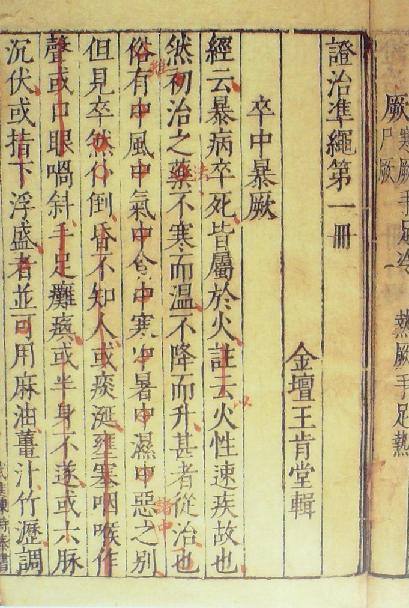 厥 寒厥手足冷 熱厥手足熱
尸厥
證治準繩第一冊
金壇王肯堂輯
卒中暴厥
經云暴病卒死皆屬於火註云火性速疾故也
然初治之藥不寒而温不降而升甚者從治也
俗有中風中氣中食中寒中暑中濕中惡之別
但見卒然仆倒昏不知人或痰涎壅塞咽喉作
聲或口眼喎斜手足癱瘓或半身不遂或六脈
沉伏或指下浮盛者並可用麻油薑汁竹瀝調